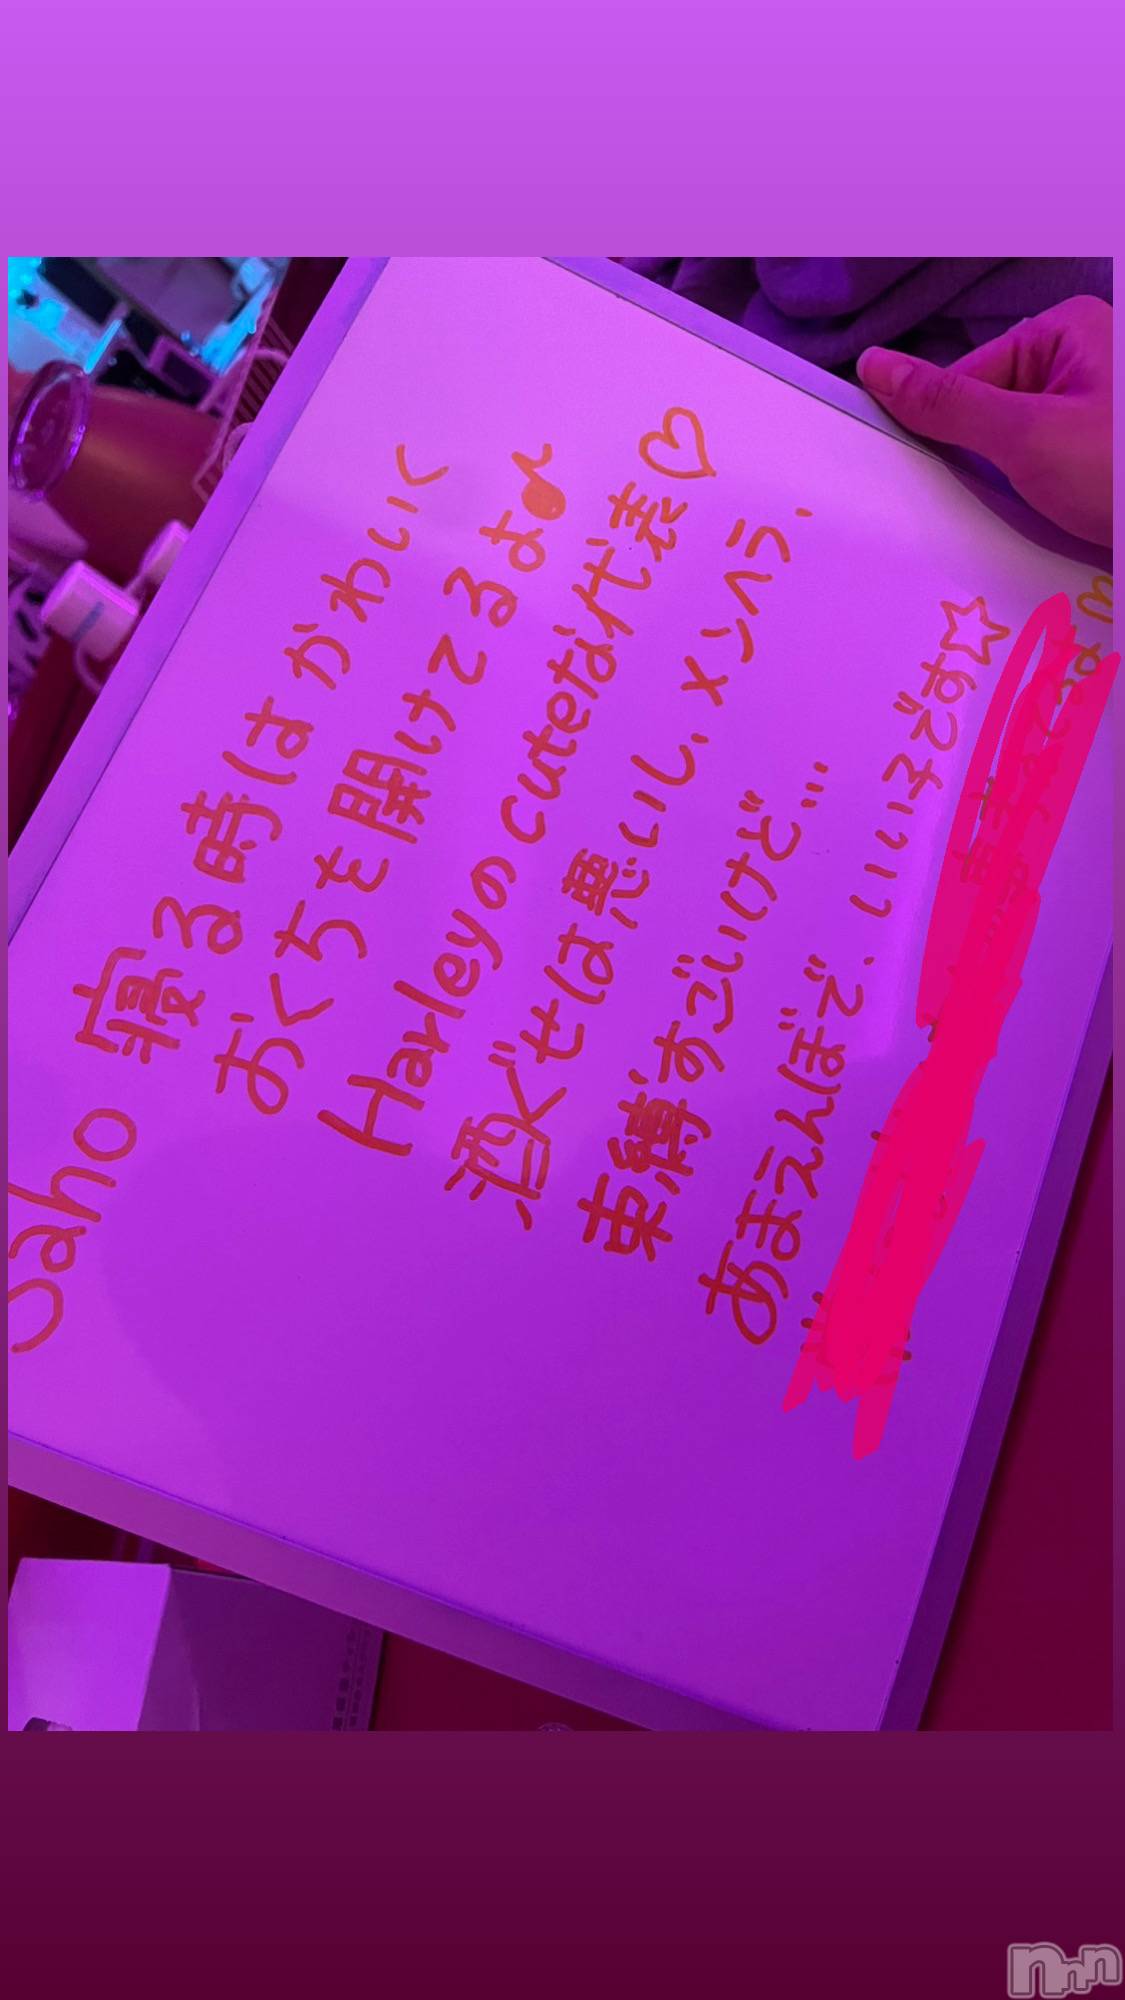 Saho 寝る時はかわいく
おくちを開けてるよ♪
Harleyのcuteな代表♡
酒ぐせは悪いし、メンヘラ、
束縛すごいけど…
あまえんぼで、いい子です☆
てるよ♡
nnn